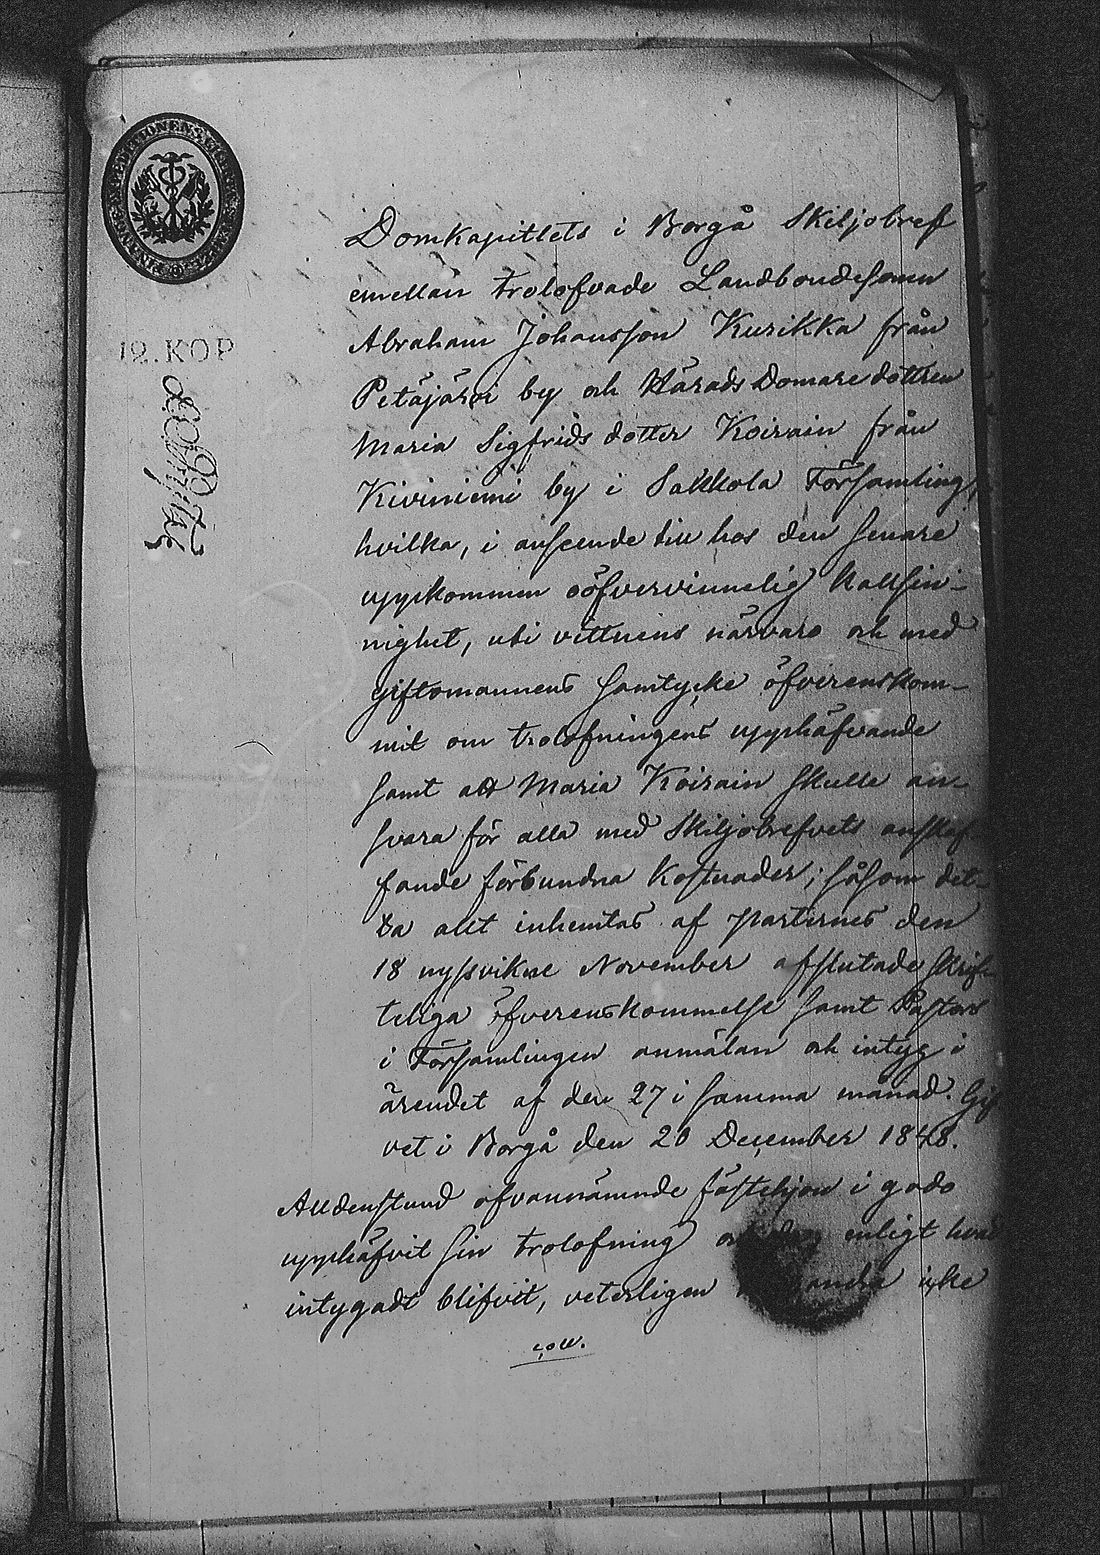 12. KOP
Domkapitlets i Borgå Skiljobref
emellan trolofvade Landbondesonen
Abraham Johansson Kurikka från
Petäjärvi by och Härads Domaredottren
Maria Sigfrids dotter Koirain från
Kiviniemi by i Sakkola Församling,
hvilka, i anseende till hos den senare
uppkommen oöfvervinnelig Kallsin-
nighet, uti vittnens närvaro och med
giftomannens samtycke öfverenskom-
mit om trolofningens upphäfvande
samt att Maria Koirain skulle an-
svara för alla med Skiljobrefvets anskaf
fande förbundna Kostnader; såsom det-
ta allt inhemtas af parternes den
18 nyssvikne November afslutade skrif-
teliga öfverenskommelse samt Pastors
i Församlingen anmälan och intyg i
ärendet af den 27 i samma månad. Gif
vet i Borgå den 20 December 1848.
Alldenstund ofvannämnde fästehjon i godo
upphäfvit sin trolofning enligt hvad
intygadt blifvit, veterligen andra icke